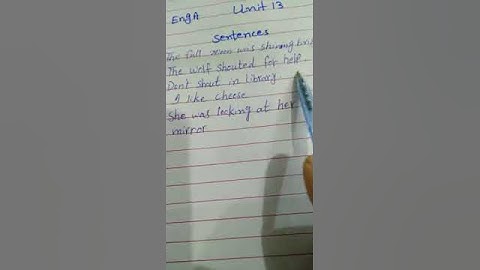 Eng A Unit 13
Sentences
The full moon was shining bri
The wolf shouted for help.
Dont shout in library
I like cheese
She was looking at her
mirror